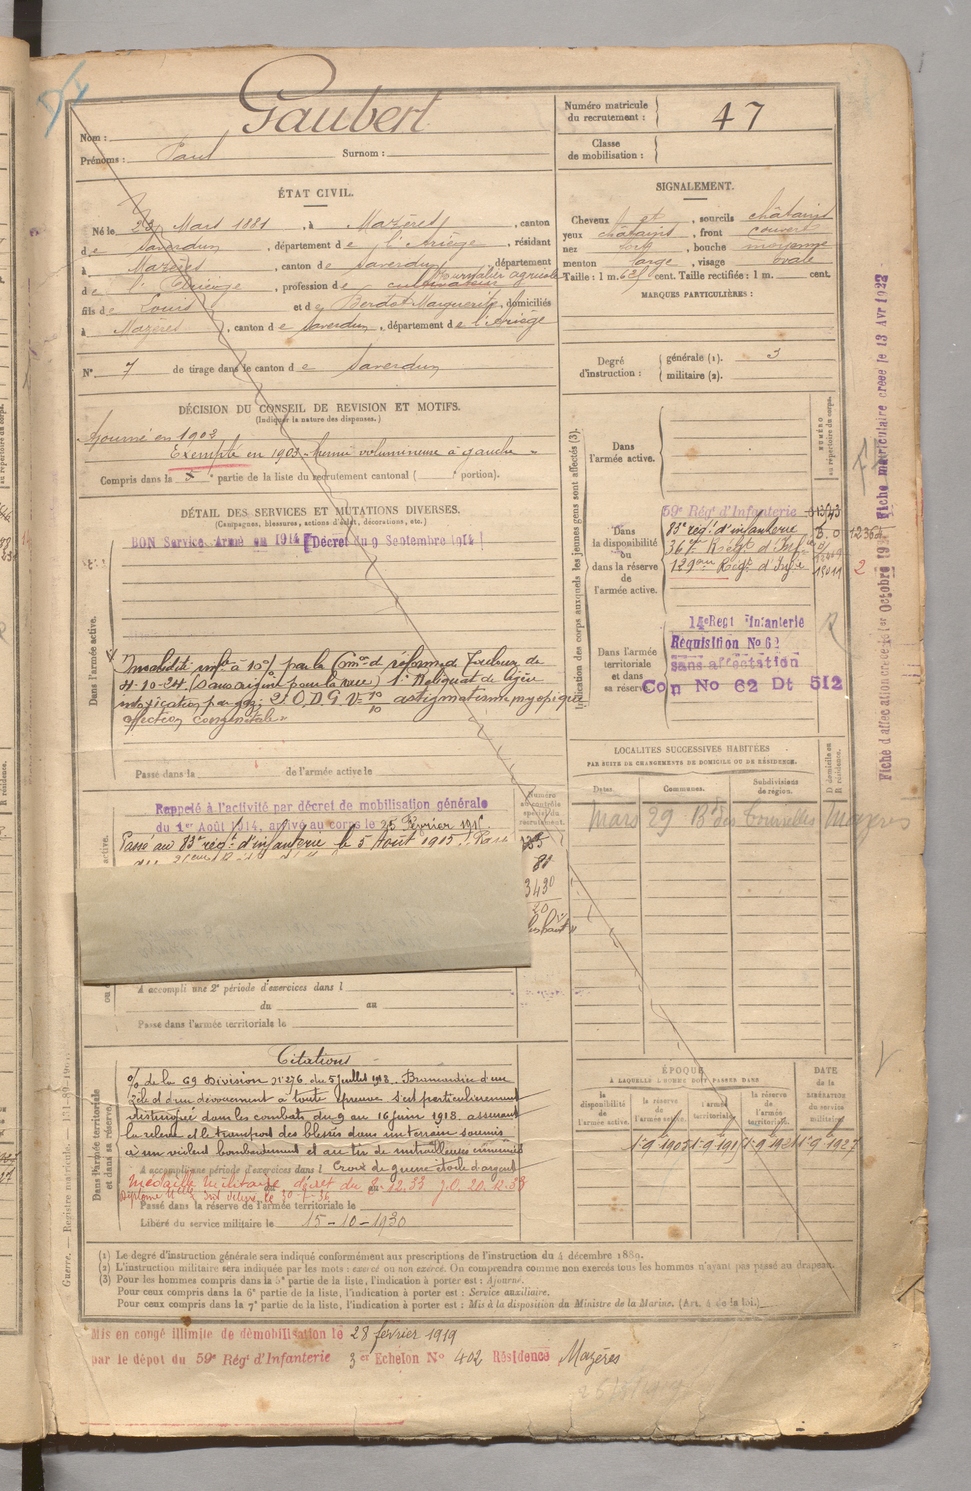 Gaubert
Nom :
Prénoms : Paul Surnom :
Numéro matricule du recrutement : 47
Classe de mobilisation :
ÉTAT CIVIL.
Né le 23 Mars 1881, à Mazères, canton
de Saverdun, département de l'Ariège, résidant
à Mazères, canton de Saverdun, département
de l'Ariège, profession de cultivateur journalier agricole
fils de Louis et de Berdot Marguerite, domiciliés
à Mazères, canton de Saverdun, département de l'Ariège
N° 7 de tirage dans le canton de Saverdun
SIGNALEMENT.
Cheveux et, sourcils châtains
yeux châtains, front couvert
nez fort, bouche moyenne
menton large, visage ovale
Taille : 1 m. 63 cent. Taille rectifiée : 1 m. cent.
MARQUES PARTICULIÈRES :
Degré d'instruction : générale (1). 3
militaire (2).
DÉCISION DU CONSEIL DE REVISION ET MOTIFS.
(Indiquer la nature des dispenses.)
Ajourné en 1902
Exempté en 1903 hernie volumineuse à gauche
Compris dans la partie de la liste du recrutement cantonal ( portion).
DÉTAIL DES SERVICES ET MUTATIONS DIVERSES.
(Campagnes, blessures, actions d'éclat, décorations, etc.)
BON Service Armé en 1914 [Décret du 9 Septembre 1914]
Dans l'armée active.
Invalidité infre à 10% par la Cmon de réforme de Toulouse du
4-10-24 (sans origine pour la vue) 1° Reliquat de légère
intoxication par gaz; 2° O.D.G. V = 10/10 astigmatisme myopique
affection congénitale"
Passé dans la de l'armée active le
Rappelé à l'activité par décret de mobilisation générale
du 1er Août 1914, arrivé au corps le 25 Février 1915
Passé au 83e rég.t d'infanterie le 5 Août 1915. Passé
Numéro au contrôle spécial du recrutement.
3430
20
A accompli une 2e période d'exercices dans l
du au
Passé dans l'armée territoriale le
Indication des corps auxquels les jeunes gens sont affectés (3).
NUMÉRO au répertoire du corps.
Dans l'armée active.
Dans la disponibilité ou dans la réserve de l'armée active.
59e Régt d'Infanterie
83e rég.t d'infanterie
367e Régt d'Infie
129ème Régt d'Infie
12364
15011
2
Dans l'armée territoriale et dans sa réserve
14e Regt Infanterie
Requisition No 62
sans affectation
Con No 62 Dt 512
Fiche matriculaire creee le 13 Avr 1922
LOCALITÉS SUCCESSIVES HABITÉES
PAR SUITE DE CHANGEMENTS DE DOMICILE OU DE RÉSIDENCE.
Dates. Communes. Subdivisions de région. D domicile ou R résidence.
Mars 29 Bd des Mazères
Dans l'armée territoriale et dans sa réserve.
Citations
% de la 69 Division N° 276 du 5 juillet 1918. Brancardier d'un
zèle et d'un dévouement à toute épreuve s'est particulièrement
distingué dans les combats du 9 au 16 juin 1918. assurant
la relève et le transport des blessés dans un terrain soumis
à un violent bombardement et au tir de mitrailleuses ennemies
A accompli une période d'exercices dans l Croix de guerre étoile d'argent
Médaille Militaire décret du 12.33 J.O. 20.12.33
Passé dans la réserve de l'armée territoriale le
Libéré du service militaire le 15-10-1930
ÉPOQUE
À LAQUELLE L'HOMME DOIT PASSER DANS
DATE de la LIBÉRATION du service militaire.
la disponibilité de l'armée active. la réserve de l'armée active. l'armée territoriale. la réserve de l'armée territoriale.
1er 9bre 1905 1er 9bre 1915 1er 9bre 1921 1er 9bre 1927
(1) Le degré d'instruction générale sera indiqué conformément aux prescriptions de l'instruction du 4 décembre 1889.
(2) L'instruction militaire sera indiquée par les mots : exercé ou non exercé. On comprendra comme non exercés tous les hommes n'ayant pas passé au drapeau.
(3) Pour les hommes compris dans la 5e partie de la liste, l'indication à porter est : Ajourné.
Pour ceux compris dans la 6e partie de la liste, l'indication à porter est : Service auxiliaire.
Pour ceux compris dans la 7e partie de la liste, l'indication à porter est : Mis à la disposition du Ministre de la Marine. (Art. 4 de la loi.)
Guerre. — Registre matricule.
Mis en congé illimité de démobilisation le 28 février 1919
par le dépot du 59e Régt d'Infanterie 3er Echelon N° 402 Résidence Mazères